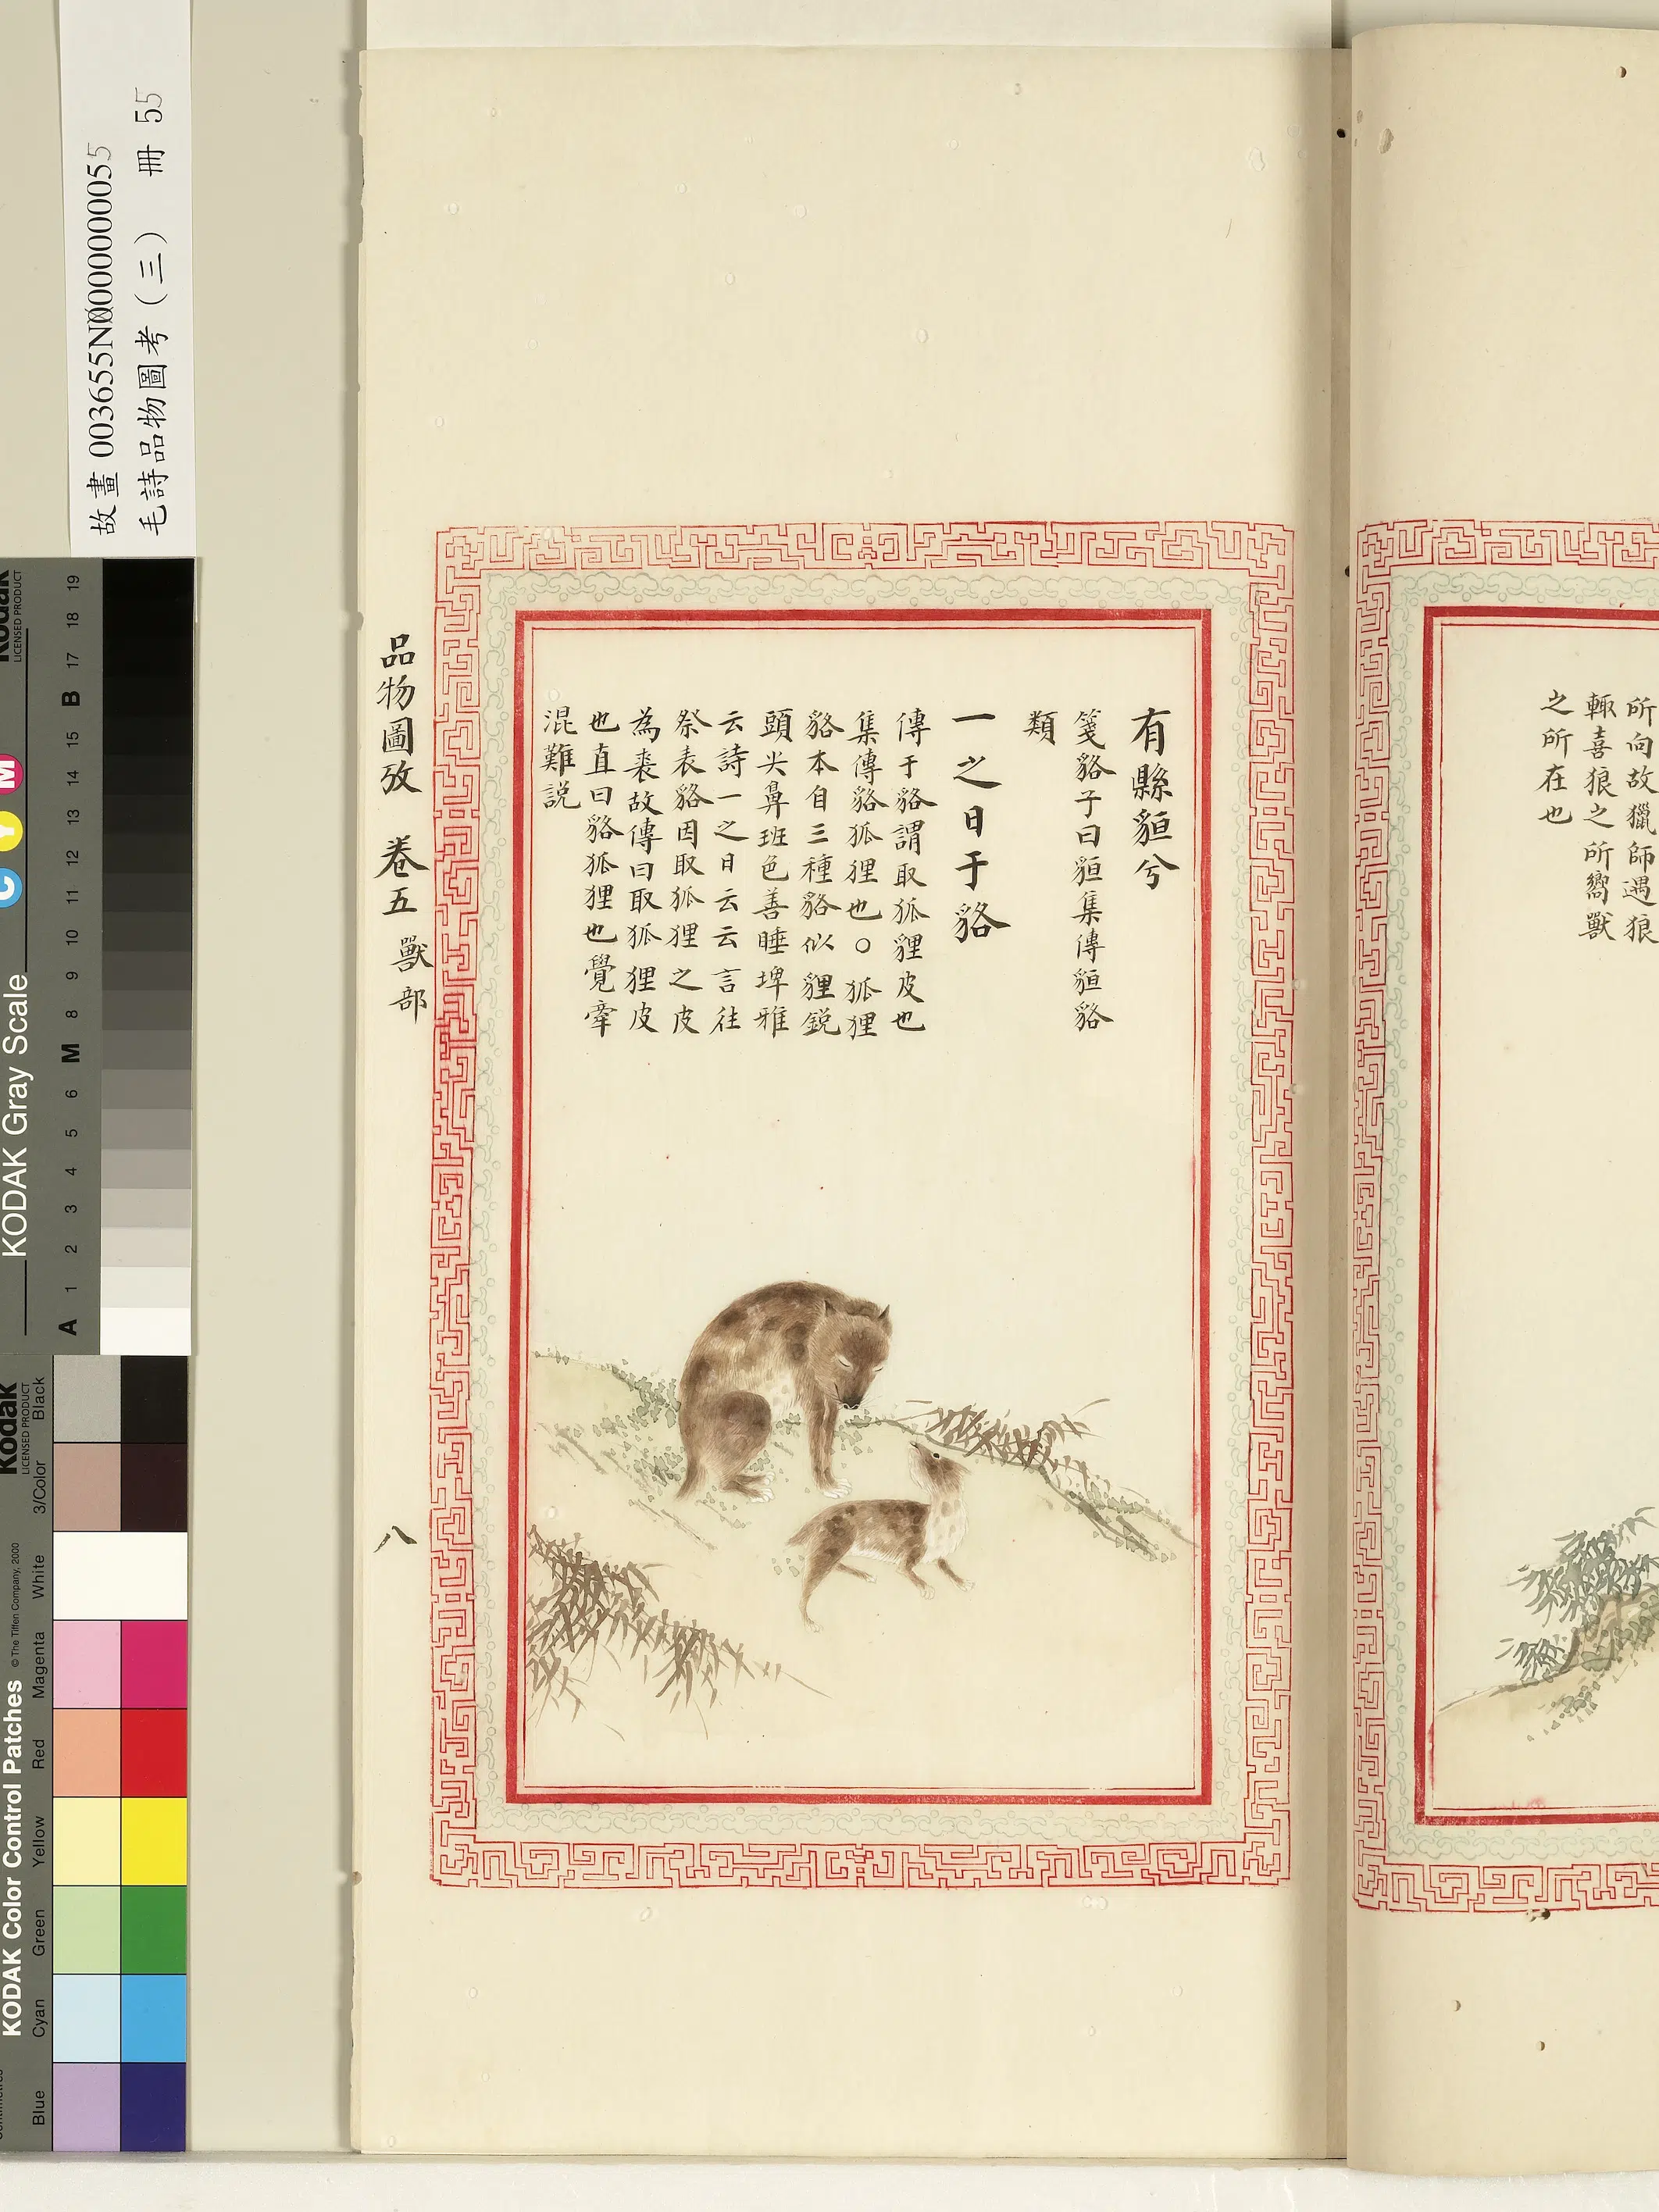 所向故獵師遇狼
輙喜狼之所嚮獸
之所在也
有縣貆兮
箋貉子曰貆集傳貆貉
類
一之日于貉
傳于貉謂取狐貍皮也
集傳貉狐狸也○狐狸
貉本自三種貉似貍鋭
頭尖鼻班色善睡埤雅
云詩一之日云云言往
祭表貉因取狐狸之皮
為裘故傳曰取狐狸皮
也直曰貉狐狸也覺牽
混難説
品物圖攷 卷五 獸部
八
故畫 003655N000000055
毛詩品物圖考（三） 冊 55
Kodak
LICENSED PRODUCT
KODAK Gray Scale
C Y M
A 1 2 3 4 5 6 M 8 9 10 11 12 13 14 15 B 17 18 19
Kodak
LICENSED PRODUCT
KODAK Color Control Patches
© The Tiffen Company, 2000
Blue Cyan Green Yellow Red Magenta White 3/Color Black